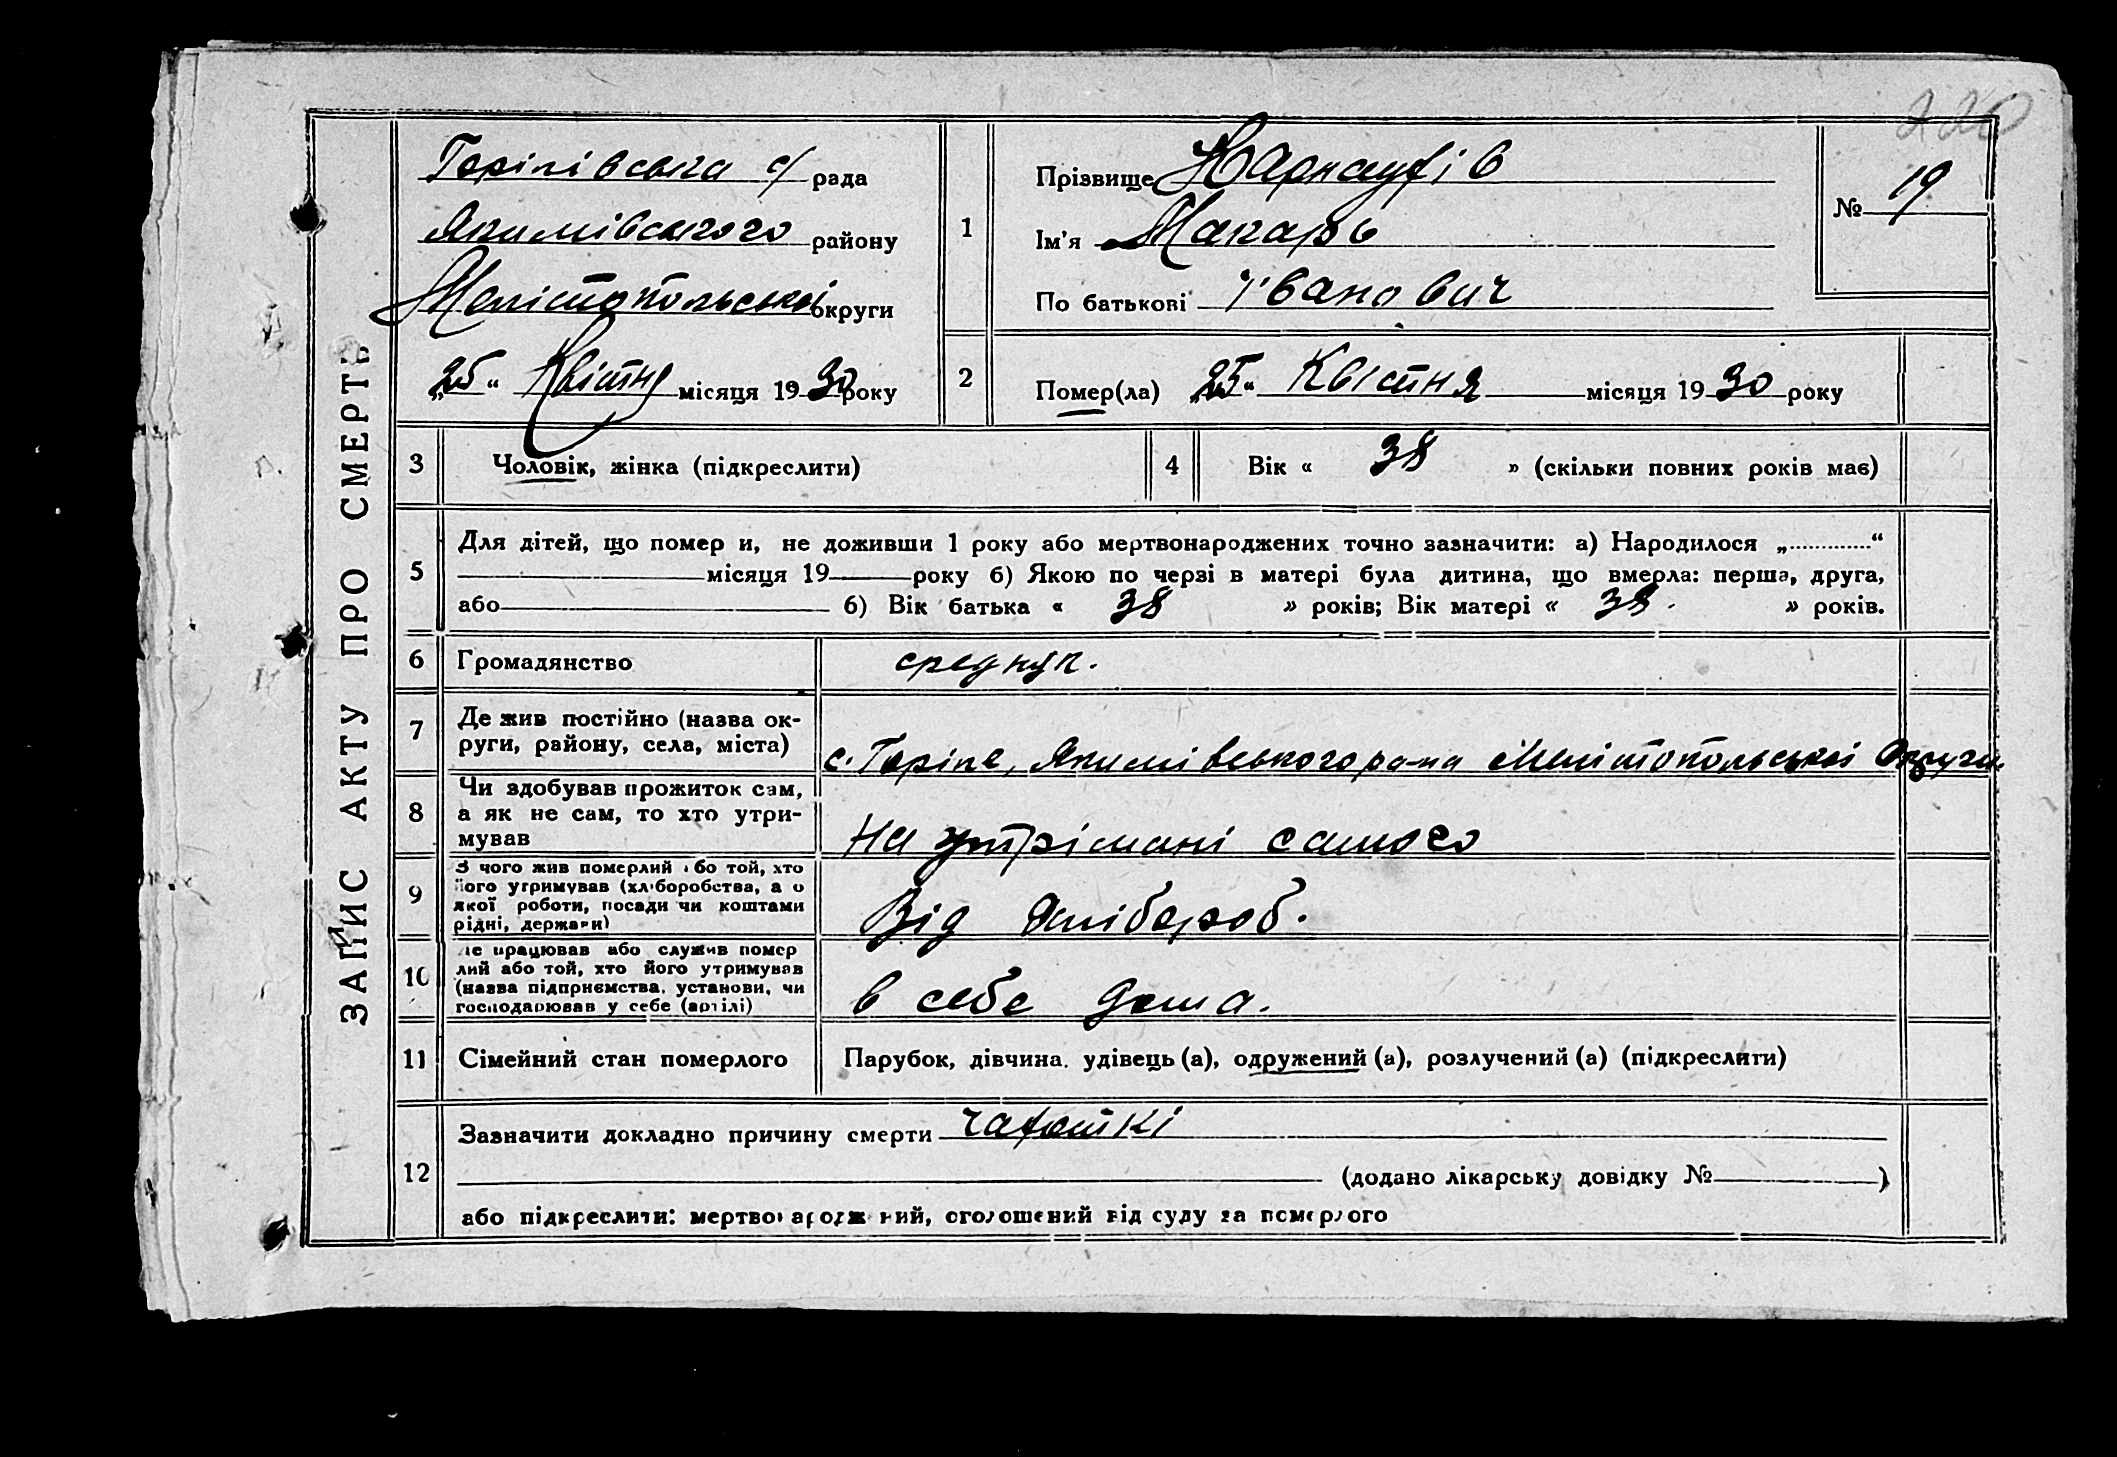 220
ЗАПИС АКТУ ПРО СМЕРТЬ
Горілівська с/ рада
Якимівського району
Мелітопольської округи
„25“ Квітня місяця 1930 року
1
Прізвище
Ім'я Макарь
По батькові Іванович
№ 19
2
Помер(ла) „25“ Квітня місяця 1930 року
3
Чоловік, жінка (підкреслити)
4
Вік « 38 » (скільки повних років має)
5
Для дітей, що помер и, не доживши 1 року або мертвонароджених точно зазначити: а) Народилося „............“
місяця 19 року б) Якою по черзі в матері була дитина, що вмерла: перша, друга,
або б) Вік батька « 38 » років; Вік матері « 38 . » років.
6
Громадянство
середняк.
7
Де жив постійно (назва ок-
руги, району, села, міста)
с. Горіле, Якимівського р-на Мелітопольської Округи
8
Чи здобував прожиток сам,
а як не сам, то хто утри-
мував
На утрімані самого
9
З чого жив померлий або той, хто
його утримував (хліборобства, а о
якої роботи, посади чи коштами
рідні, держави)
Від Хлібороб.
10
Де працював або служив помер
лий або той, хто його утримував
(назва підприємства, установи, чи
господарював у себе (артілі)
в себе дома.
11
Сімейний стан померлого
Парубок, дівчина, удівець (а), одружений (а), розлучений (а) (підкреслити)
12
Зазначити докладно причину смерти
(додано лікарську довідку № )
або підкреслити: мертвонароджений, оголошений від суду за померлого